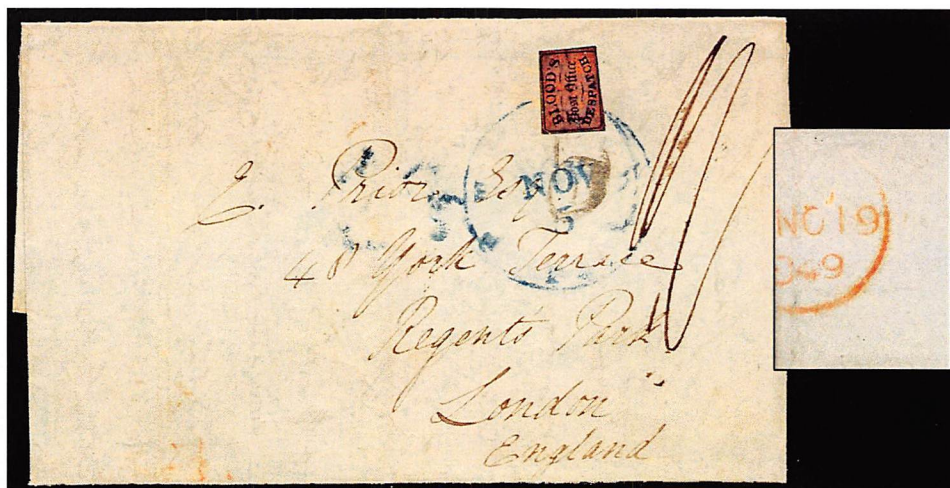 BLOOD'S
Post Office
DESPATCH.
NOV
5
E. Prior Esq
48 York Terrace
Regent's Park
London
England
NO 19
1849